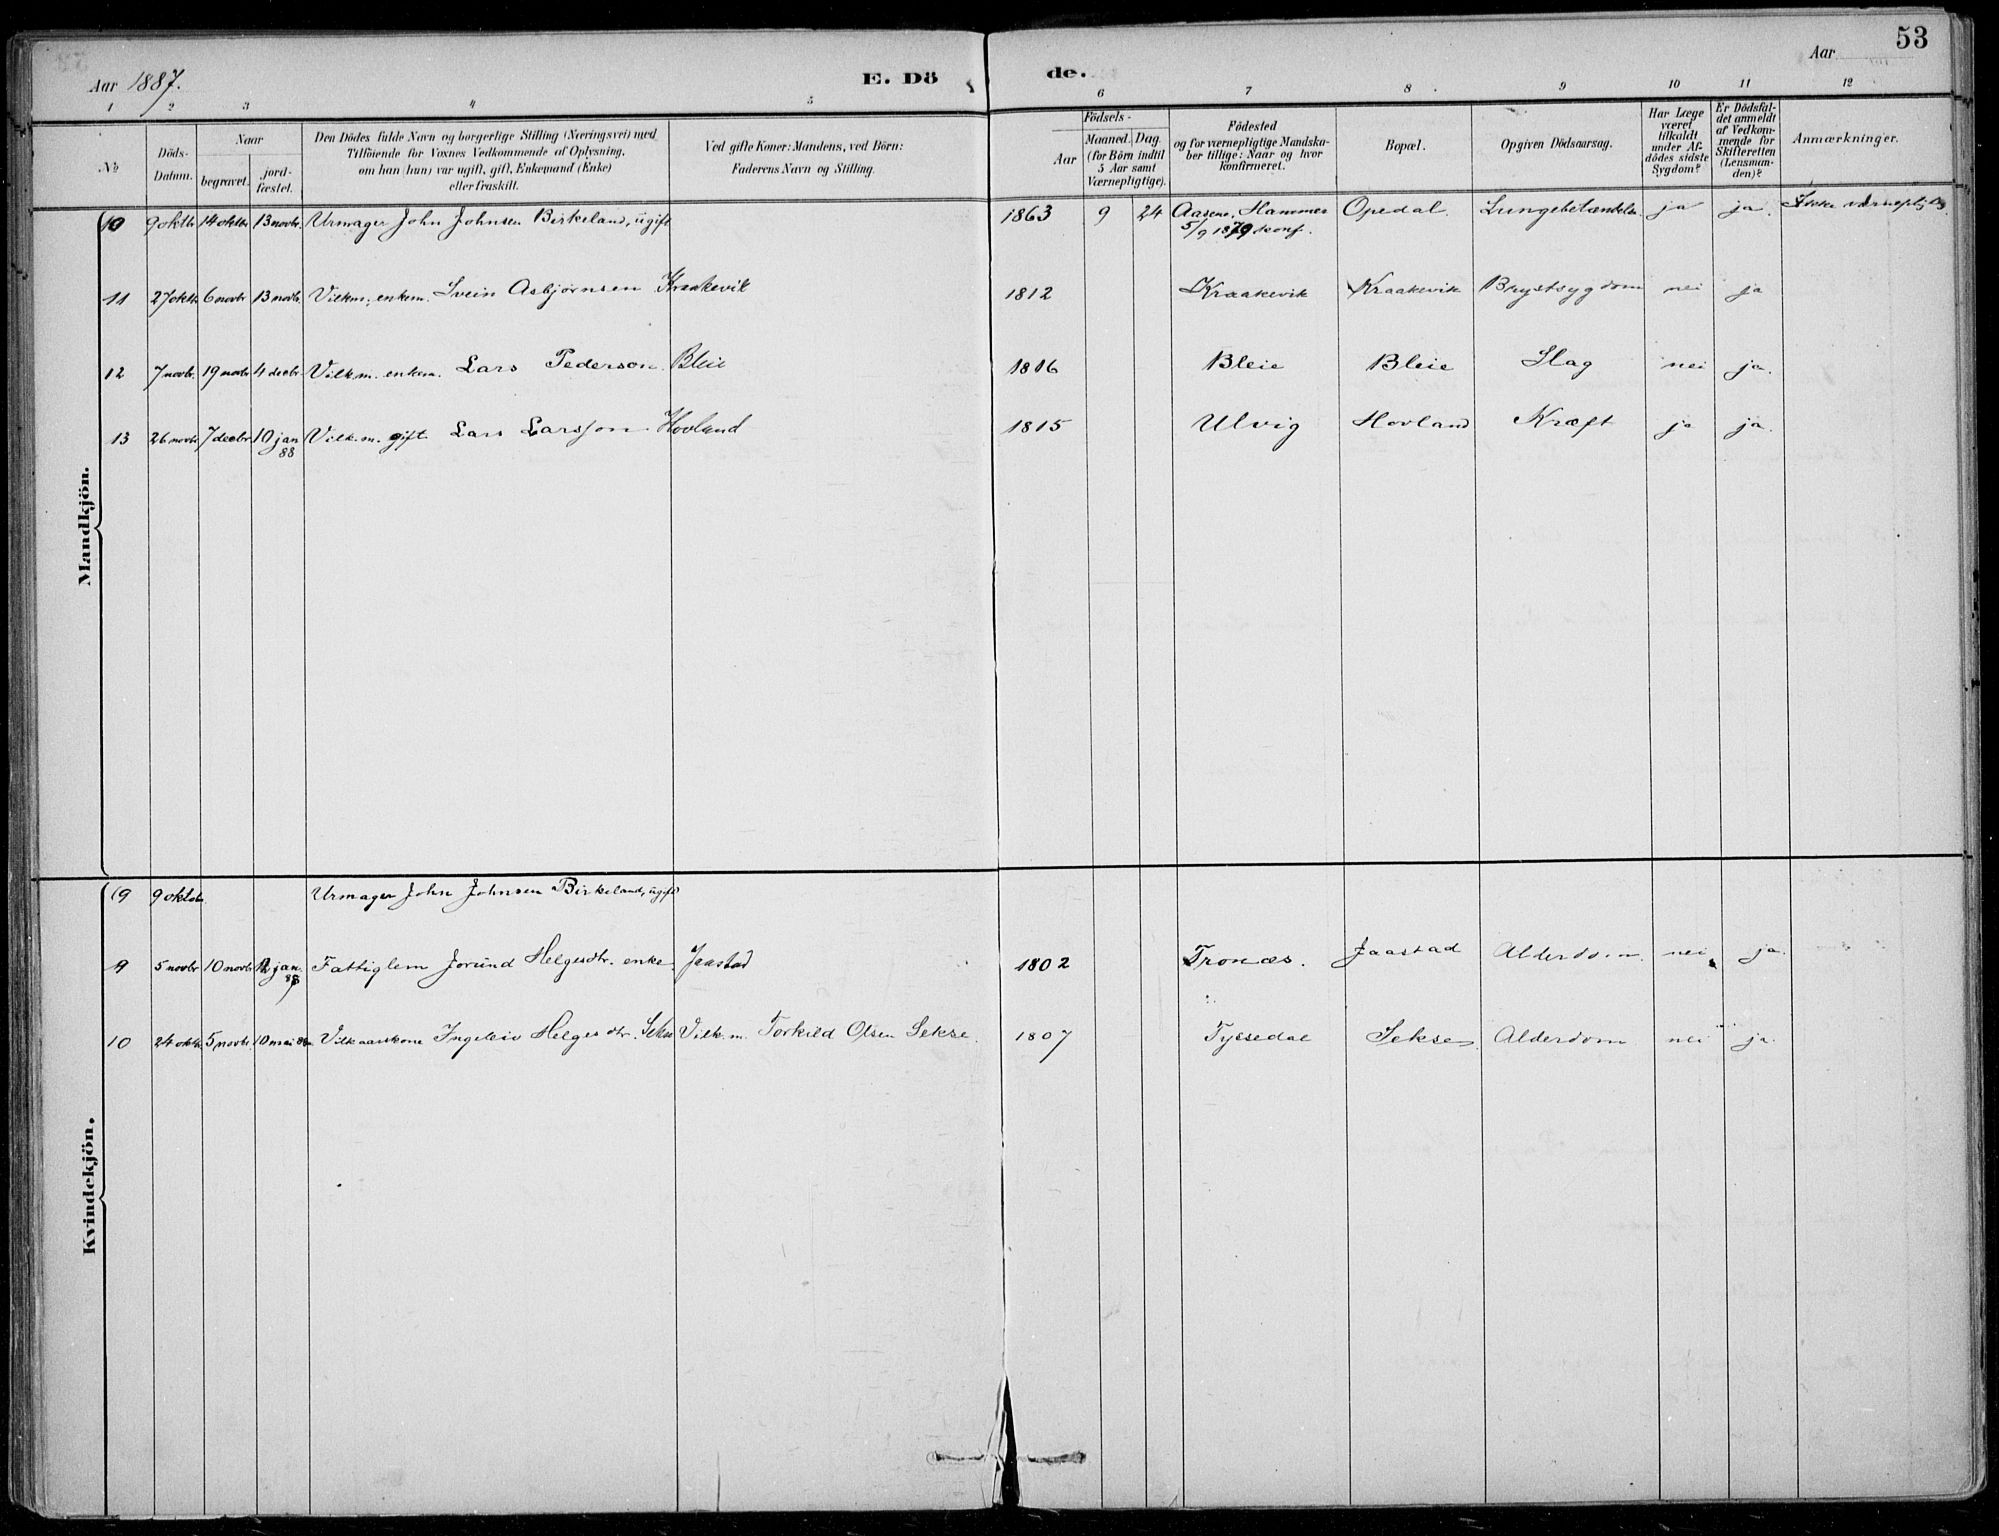 53
Aar 1887. E. Dö de. Aar
1 2 3 4 5 6 7 8 9 10 11 12
№
Döds-
Datum.
Naar
begravet.
jord-
fæstet.
Den Dödes fulde Navn og borgerlige Stilling (Næringsvei) med
Tilföiende for Voxnes Vedkommende af Oplysning,
om han (hun) var ugift, gift, Enkemand (Enke)
eller fraskilt.
Ved gifte Koner: Mandens, ved Börn:
Faderens Navn og Stilling.
Födsels-
Aar
Maaned. Dag.
(for Börn indtil
5 Aar samt
Værnepligtige).
Födested
og for værnepligtige Mandska-
ber tillige: Naar og hvor
konfirmeret.
Bopæl.
Opgiven Dödsaarsag.
Har Læge
været
tilkaldt
under Af-
dödes sidste
Sygdom?
Er Dödsfal-
det anmeldt
af Vedkom-
mende for
Skifteretten
(Lensman-
den)?
Anmærkninger.
Mandkjön.
10 9 oktbr 14 oktbr 13 novbr. Urmager John Johnsen Birkeland, ugift 1863 9 24 Aasene, Hammer Opedal. Lungebetændelse ja ja. Ikke værnepligtig.
5/9 1879 konf.
11 27 oktbr 6 novbr 13 novbr. Vilkm. enkem. Svein Asbjørnsen Kraakevik 1812 Kraakevik Kraakevik Brystsygdom nei ja
12 7 novbr. 19 novbr 4 decbr Vilk.m. enkem. Lars Pederson Bleie 1816 Bleie Bleie Slag nei ja.
13 26 novbr 7 decbr 10 jan Vilk.m. gift Lars Larsson Hovland 1815 Ulvig Hovland Kræft ja ja.
88
Kvindekjön.
19 9 oktobr Urmager John Johnsen Birkeland, ugift
9 5 novbr 10 novbr 12 jan. Fattiglem Jorund Helgesdtr. enke Jaastad 1802 Tronæs. Jaastad Alderdom nei ja.
88
10 24 oktbr 5 novbr. 10 mai 88 Vilkaarskone Ingeleiv Helgesdtr. Sekse Vilk.m. Torkild Olsen Sekse. 1807 Tyssedal Sekse. Alderdom nei ja.